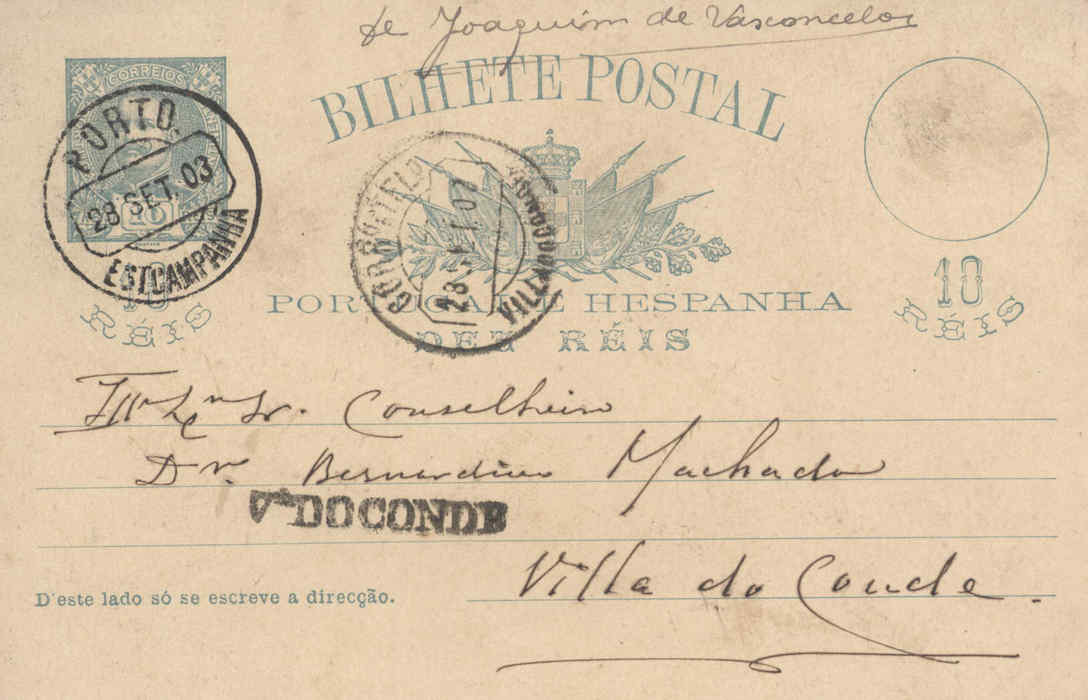 de Joaquim de Vasconcelos
BILHETE POSTAL
CORREIOS
PORTO.
28 SET. 03
EST CAMPANHA
CORREIO E TELEG
28 SET 03
VILLA DO CONDE
10
RÉIS
PORTUGAL E HESPANHA
DEZ RÉIS
10
RÉIS
Illmo Exmo Sr. Conselheiro
Dr. Bernardino Machado
Va DO CONDE
Villa do Conde.
D'este lado só se escreve a direcção.